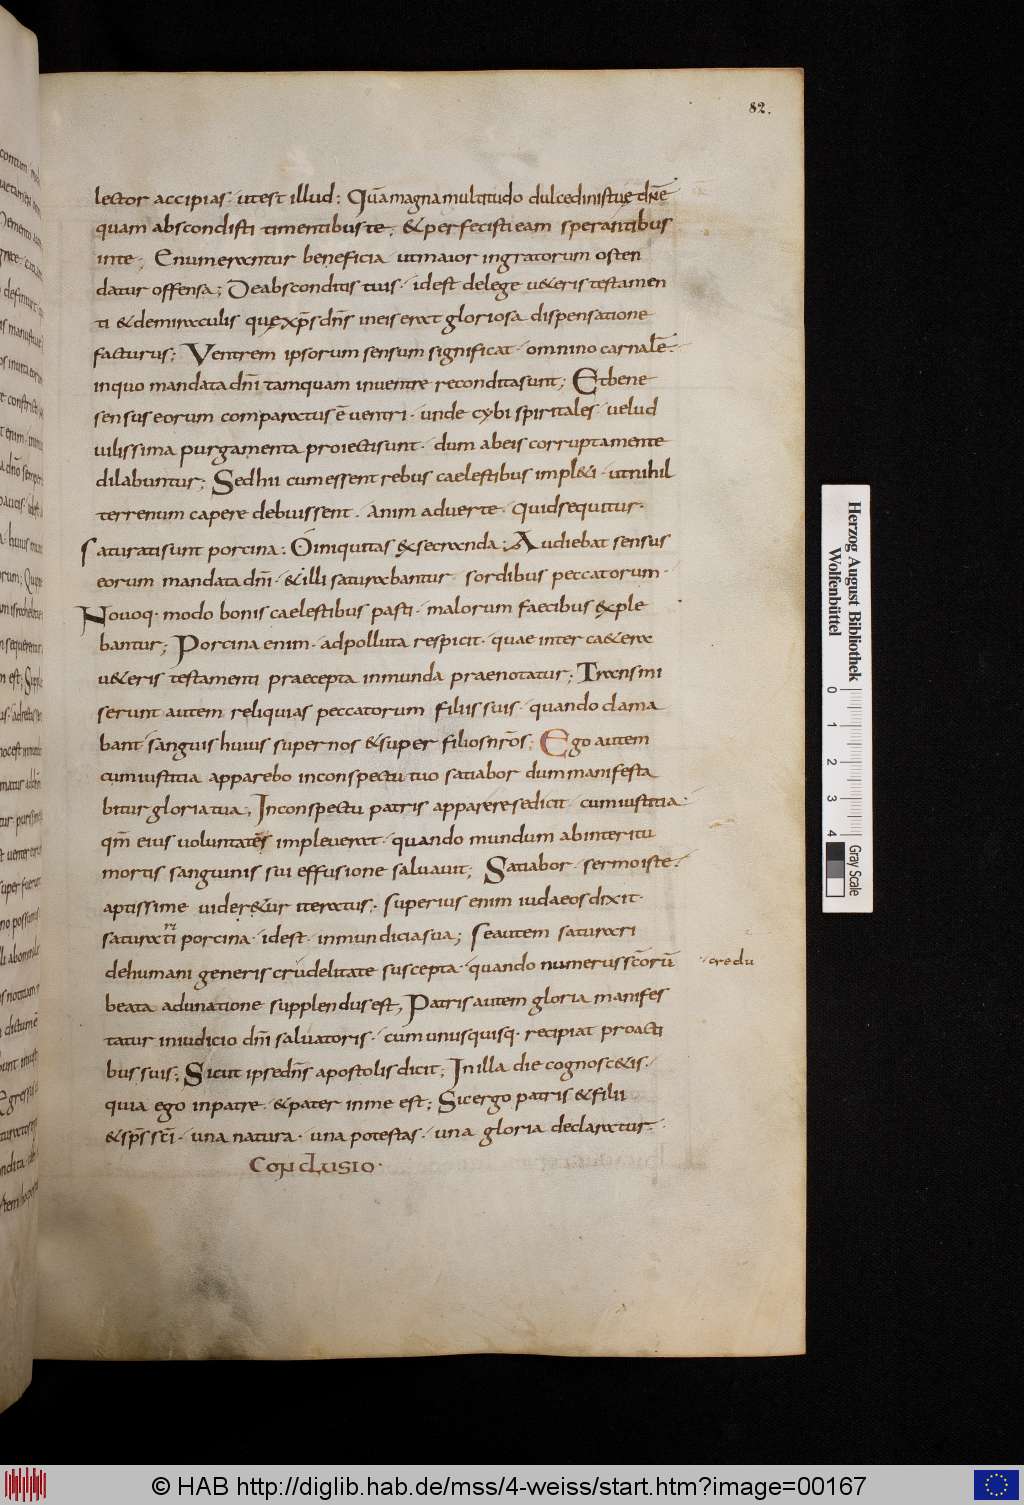 82.
lector accipias· utest illud: Quā magna multitudo dulcedinis tuę dn̄e
quam abscondisti timentibus te; & perfecisti eam sperantibus
in te; Enumerantur beneficia ut maior ingratorum osten
datur offensa; De absconditis tuis· id est de lege u&eris testamen
ti & de miraculis quę xp̄s dn̄s in eis erat gloriosa dispensatione
facturus; Ventrem ipsorum sensum significat· omnino carnalē·
in quo mandata dn̄i tamquam in uentre recondita sunt; Et bene
sensus eorum comparatus ē uentri· unde cybi spiritales· uelud
uilissima purgamenta proiecti sunt· dum ab eis corrupta mente
dilabuntur; Sed hii cum essent rebus caelestibus impl&i· ut nihil
terrenum capere debuissent· anim aduerte· quid sequitur·
Saturati sunt porcina: O iniquitas & secranda; Audiebat sensus
eorum mandata dn̄i· & illi saturabantur· sordibus peccatorum·
Nouoq· modo bonis caelestibus pasti· malorum faecibus & ple
bantur; Porcina enim· ad polluta respicit· quae inter ca&era
u&eris testamenti praecepta inmunda praenotatur; Transmi
serunt autem reliquias peccatorum filiis suis· quando clama
bant· sanguis huius super nos & super filios nr̄os; Ego autem
cum iustitia apparebo in conspectu tuo satiabor dum manifesta
bitur gloria tua; In conspectu patris apparere se dicit· cum iustitia·
qm̄ eius uoluntates impleuerat· quando mundum ab interitu
mortis sanguinis sui effusione saluauit; Satiabor· sermo iste·
aptissime uider&ur iteratus· superius enim iudaeos dixit·
saturati porcina· id est· inmundicia sua; Se autem saturari
de humani generis crudelitate suscepta· quando numerus sc̄orū
·credu
beata adunatione supplendus est; Patris autem gloria manifes
tatur in iudicio dn̄i saluatoris· cum unusquisq· recipiat pro acti
bus suis; Sicut ipse dn̄s apostolis dicit; In illa die cognosc&is·
quia ego in patre· & pater in me est; Sic ergo patris & filii
& sp̄s sc̄i· una natura· una potestas· una gloria declaratur·
CONCLUSIO·
Herzog August Bibliothek
Wolfenbüttel
0 1 2 3 4
Gray Scale
© HAB http://diglib.hab.de/mss/4-weiss/start.htm?image=00167